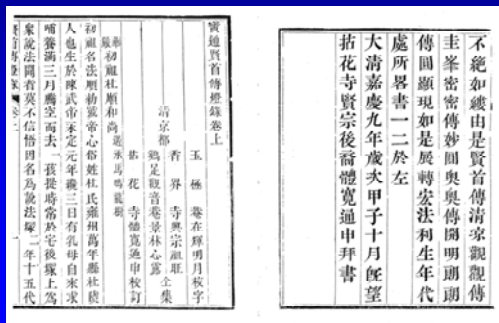 不絶如縷由是賢首傳清涼觀觀傳
圭峯密密傳妙圓奧奧傳開明朗朗
傳圓顯現如是展轉宏法利生年代
處所畧書一二於左
大清嘉慶九年歲次甲子十月既望
拈花寺賢宗後裔體寬通申拜書
寳通賢首傳燈錄卷上
清京都
玉極菴在輝明月校字
香界寺興宗祖旺
雞足觀音菴景林心露
仝集
拈花寺體寬通申校訂
華嚴初祖杜順和尚 遥承馬鳴龍樹
初祖名法順勅號帝心俗姓杜氏雍州萬年縣杜陵
人也生於陳武帝永定元年纔三日有乳母自來求
哺養滿三月騰空而去一孩提時常於宅後塚上為
衆說法聞者莫不信悟因名為說法塚二年十五代
賢首傳燈錄 卷上 一